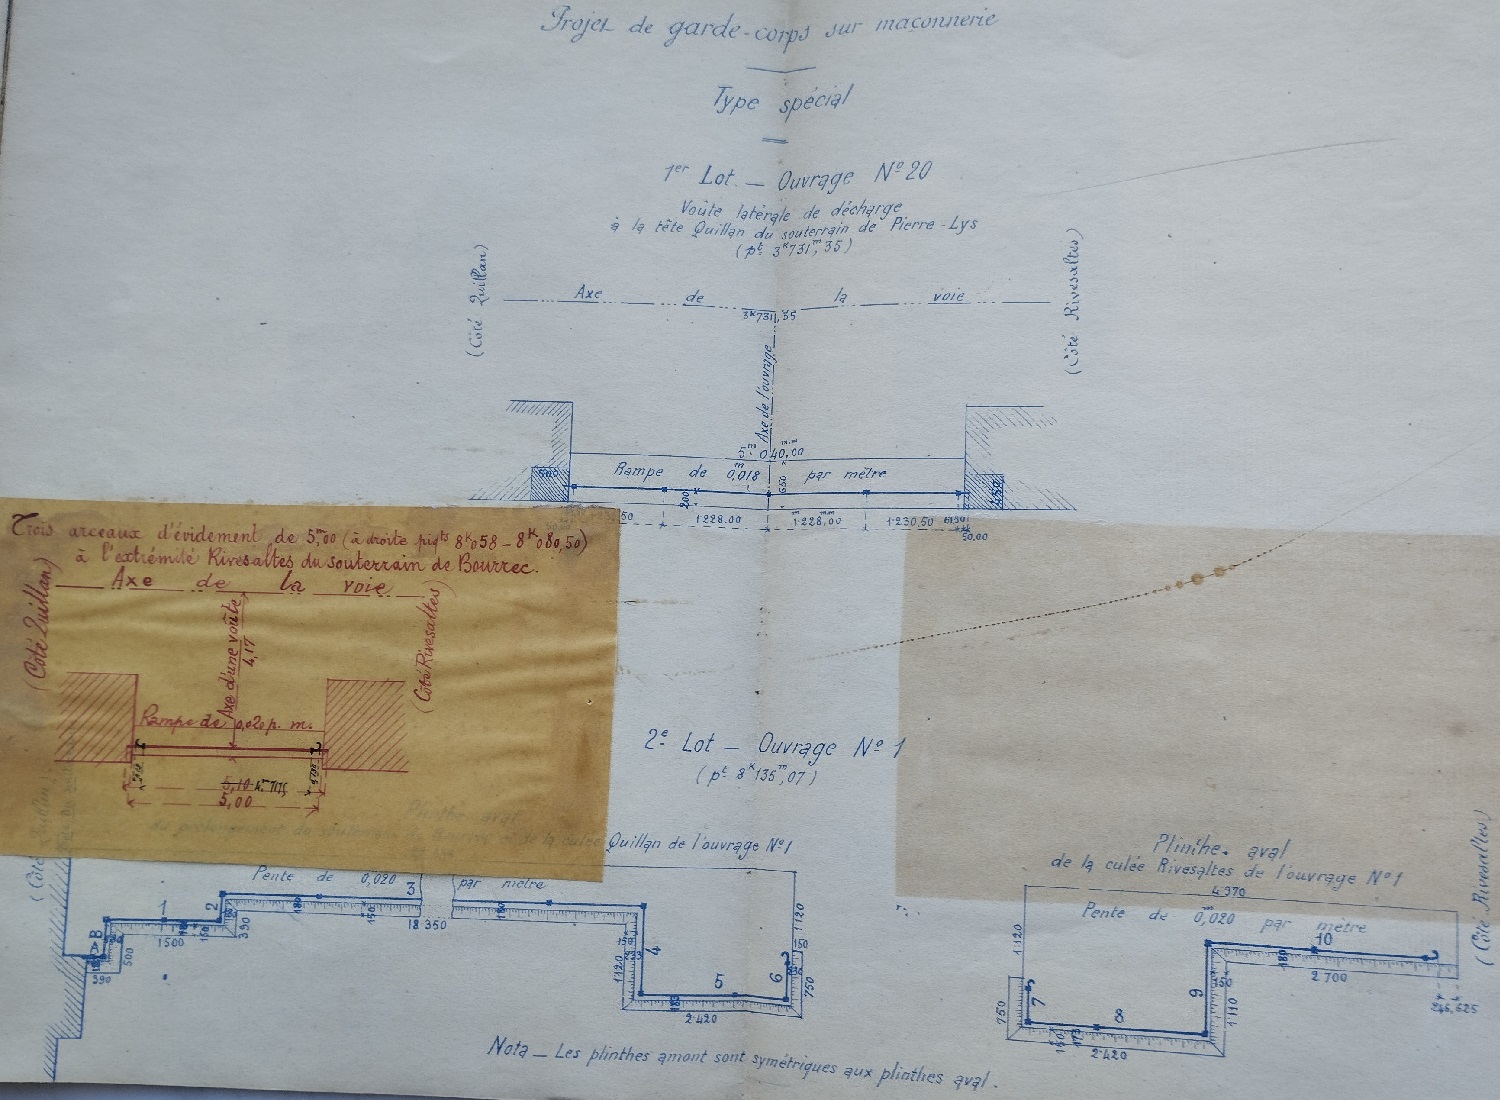 Projet de garde-corps sur maçonnerie
Type spécial
1er Lot. — Ouvrage No 20
Voûte latérale de décharge
à la tête Quillan du souterrain de Pierre-Lys
(pt 3k731m,35)
(Côté Quillan)
(Côté Rivesaltes)
Axe de la voie
3k731,35
Axe de l'ouvrage
5m 040,00
Rampe de 0m,018 par mètre
500
650
200
450
1228.00 1.228,00 1.230,50
50,00
Trois arceaux d'évidement de 5m,00 (à droite piqts 8k058 – 8k080,50)
à l'extrémité Rivesaltes du souterrain de Bourrec.
Axe de la voie
(Côté Quillan)
(Côté Rivesaltes)
Axe d'une voûte
4,17
Rampe de 0,020 p. m.
5,10
5,00
2e Lot — Ouvrage No 1
(pt 8k135m,07)
Plinthe aval
Quillan de l'ouvrage No1
Pente de 0,020 par mètre
A B 1 2 3 4 5 6
1500
390
500
590
150
180
18 350
1120
2.420
1120
150
750
Plinthe aval
de la culée Rivesaltes de l'ouvrage No1
4.970
Pente de 0,020 par mètre
(Côté Rivesaltes)
7 8 9 10
1.120
750
150
2.420
1.110
180
2 700
246,625
Nota — Les plinthes amont sont symétriques aux plinthes aval.